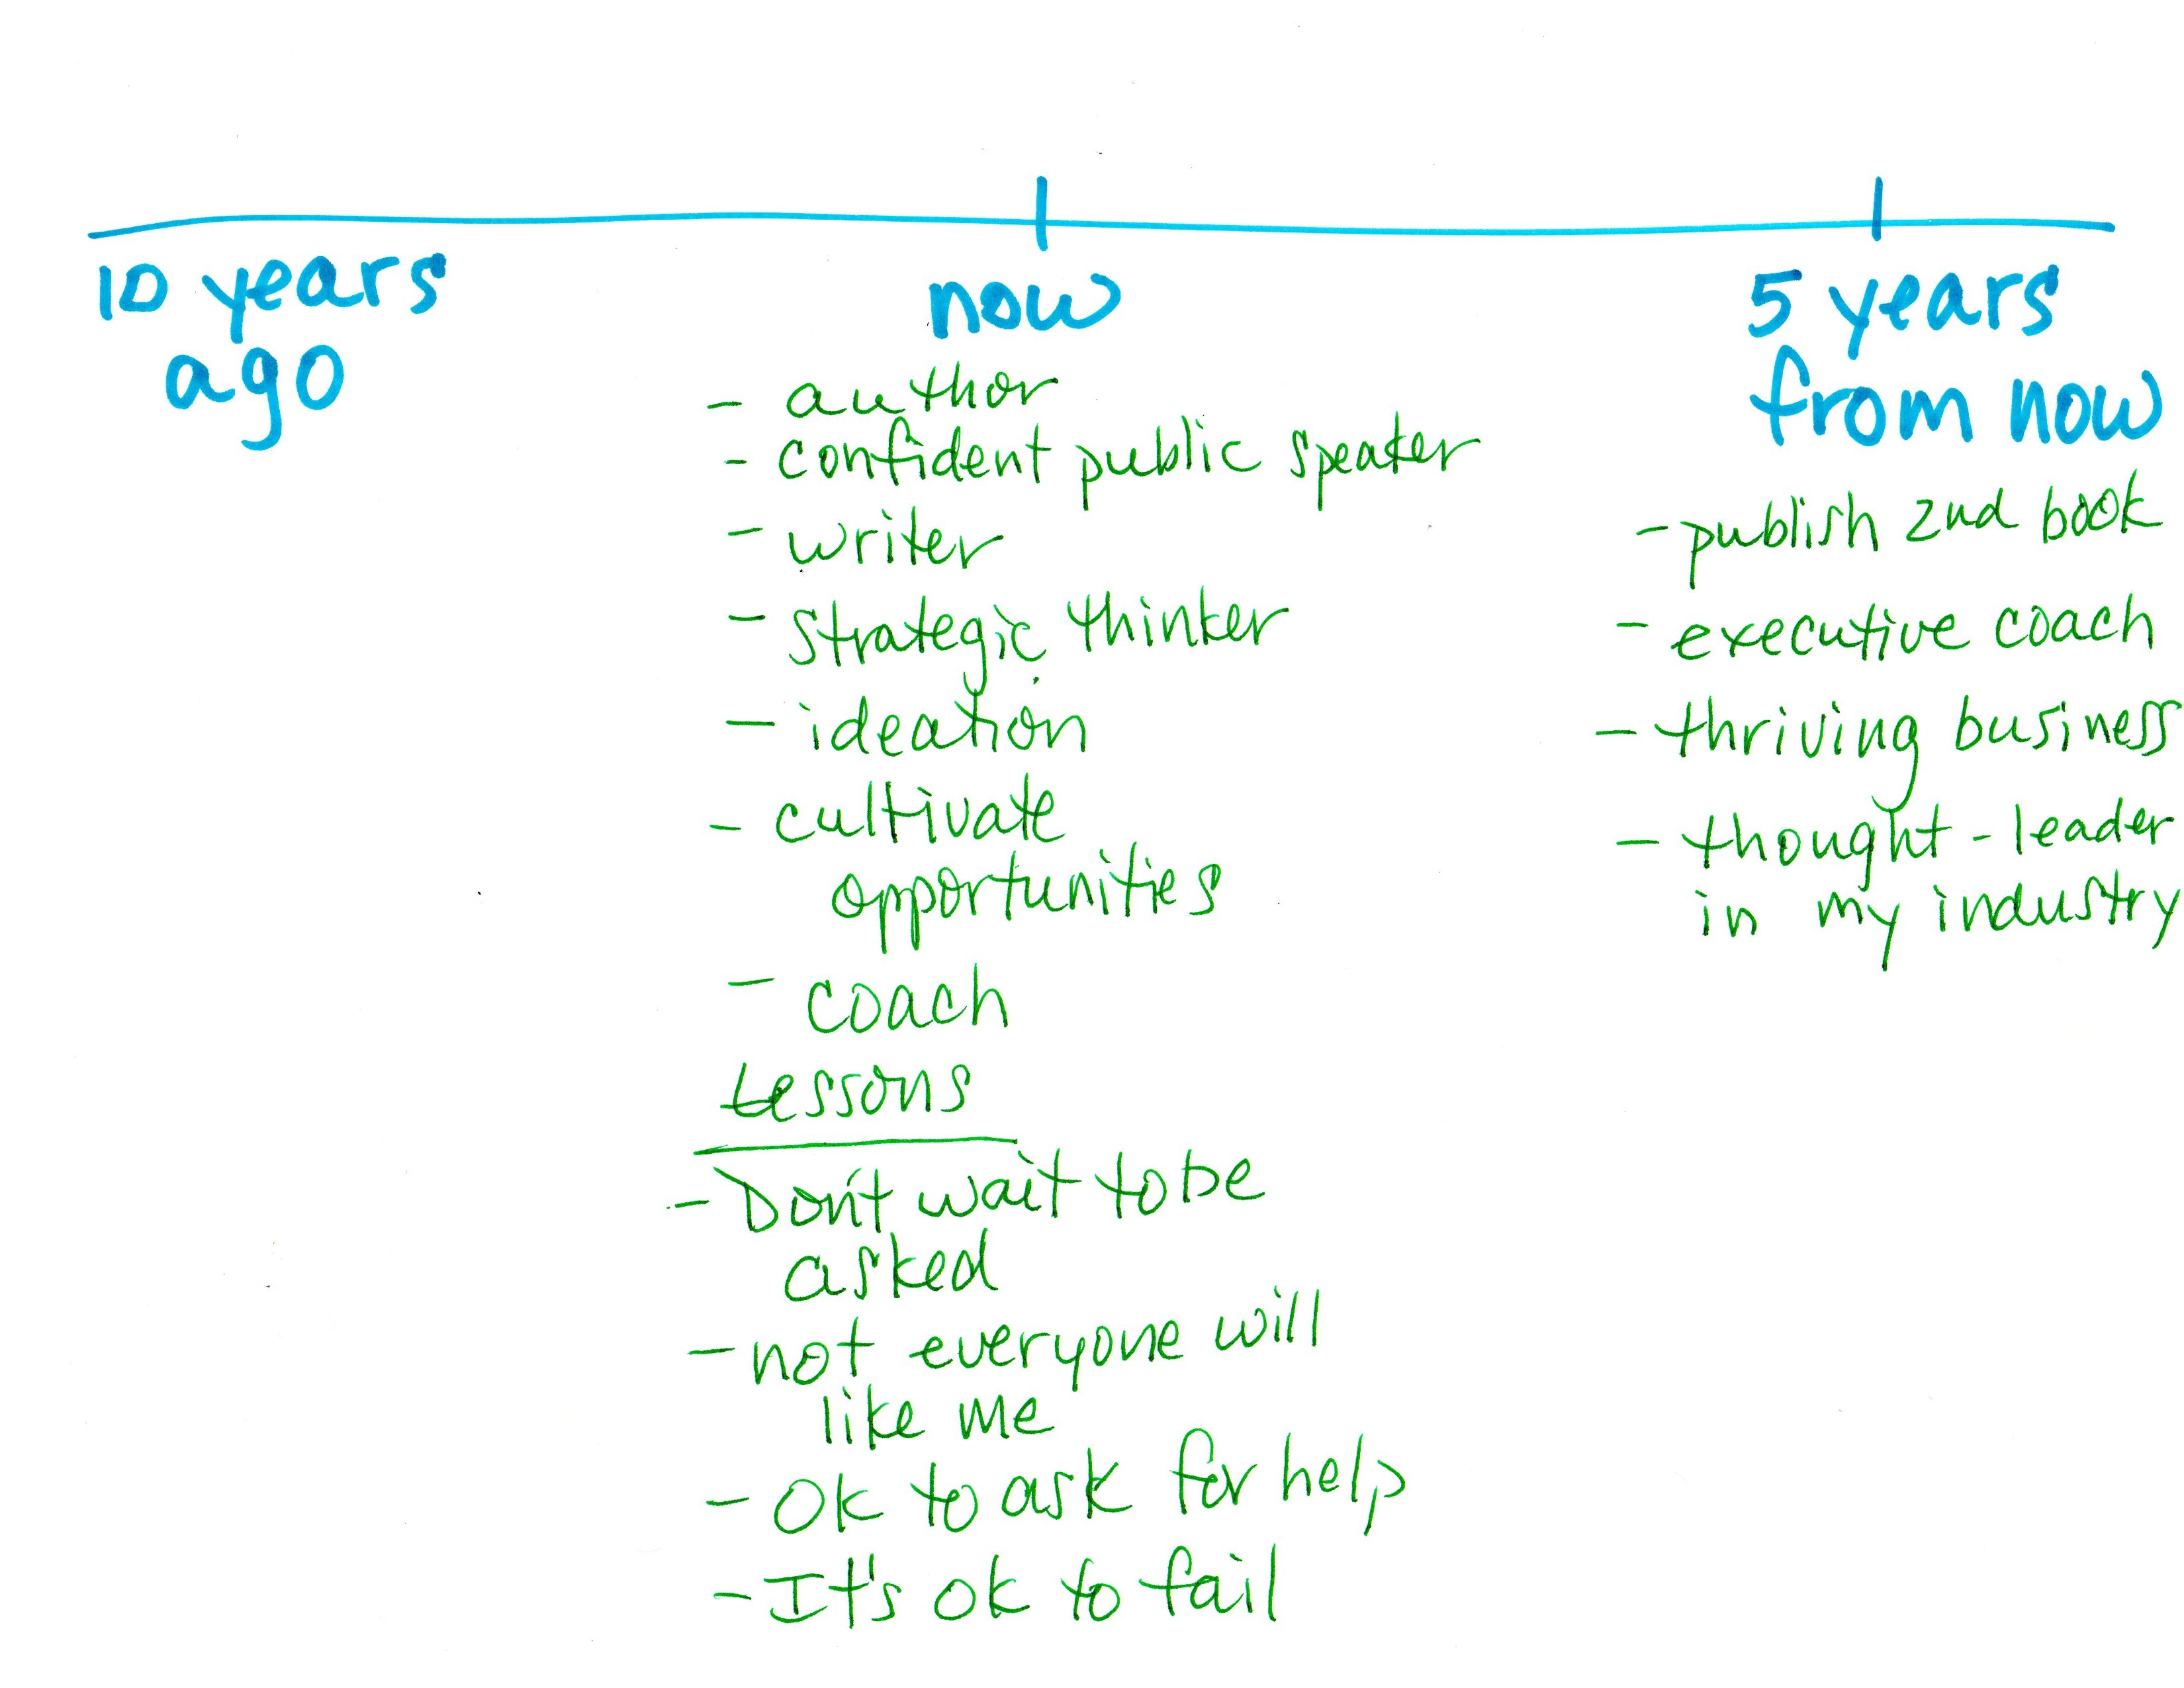 10 years
ago
now
- author
- confident public speaker
- writer
- strategic thinker
- ideation
- cultivate
opportunities
- coach
Lessons
- Don't wait to be
asked
- not everyone will
like me
- OK to ask for help
- It's ok to fail
5 years
from now
- publish 2nd book
- executive coach
- thriving business
- thought-leader
in my industry